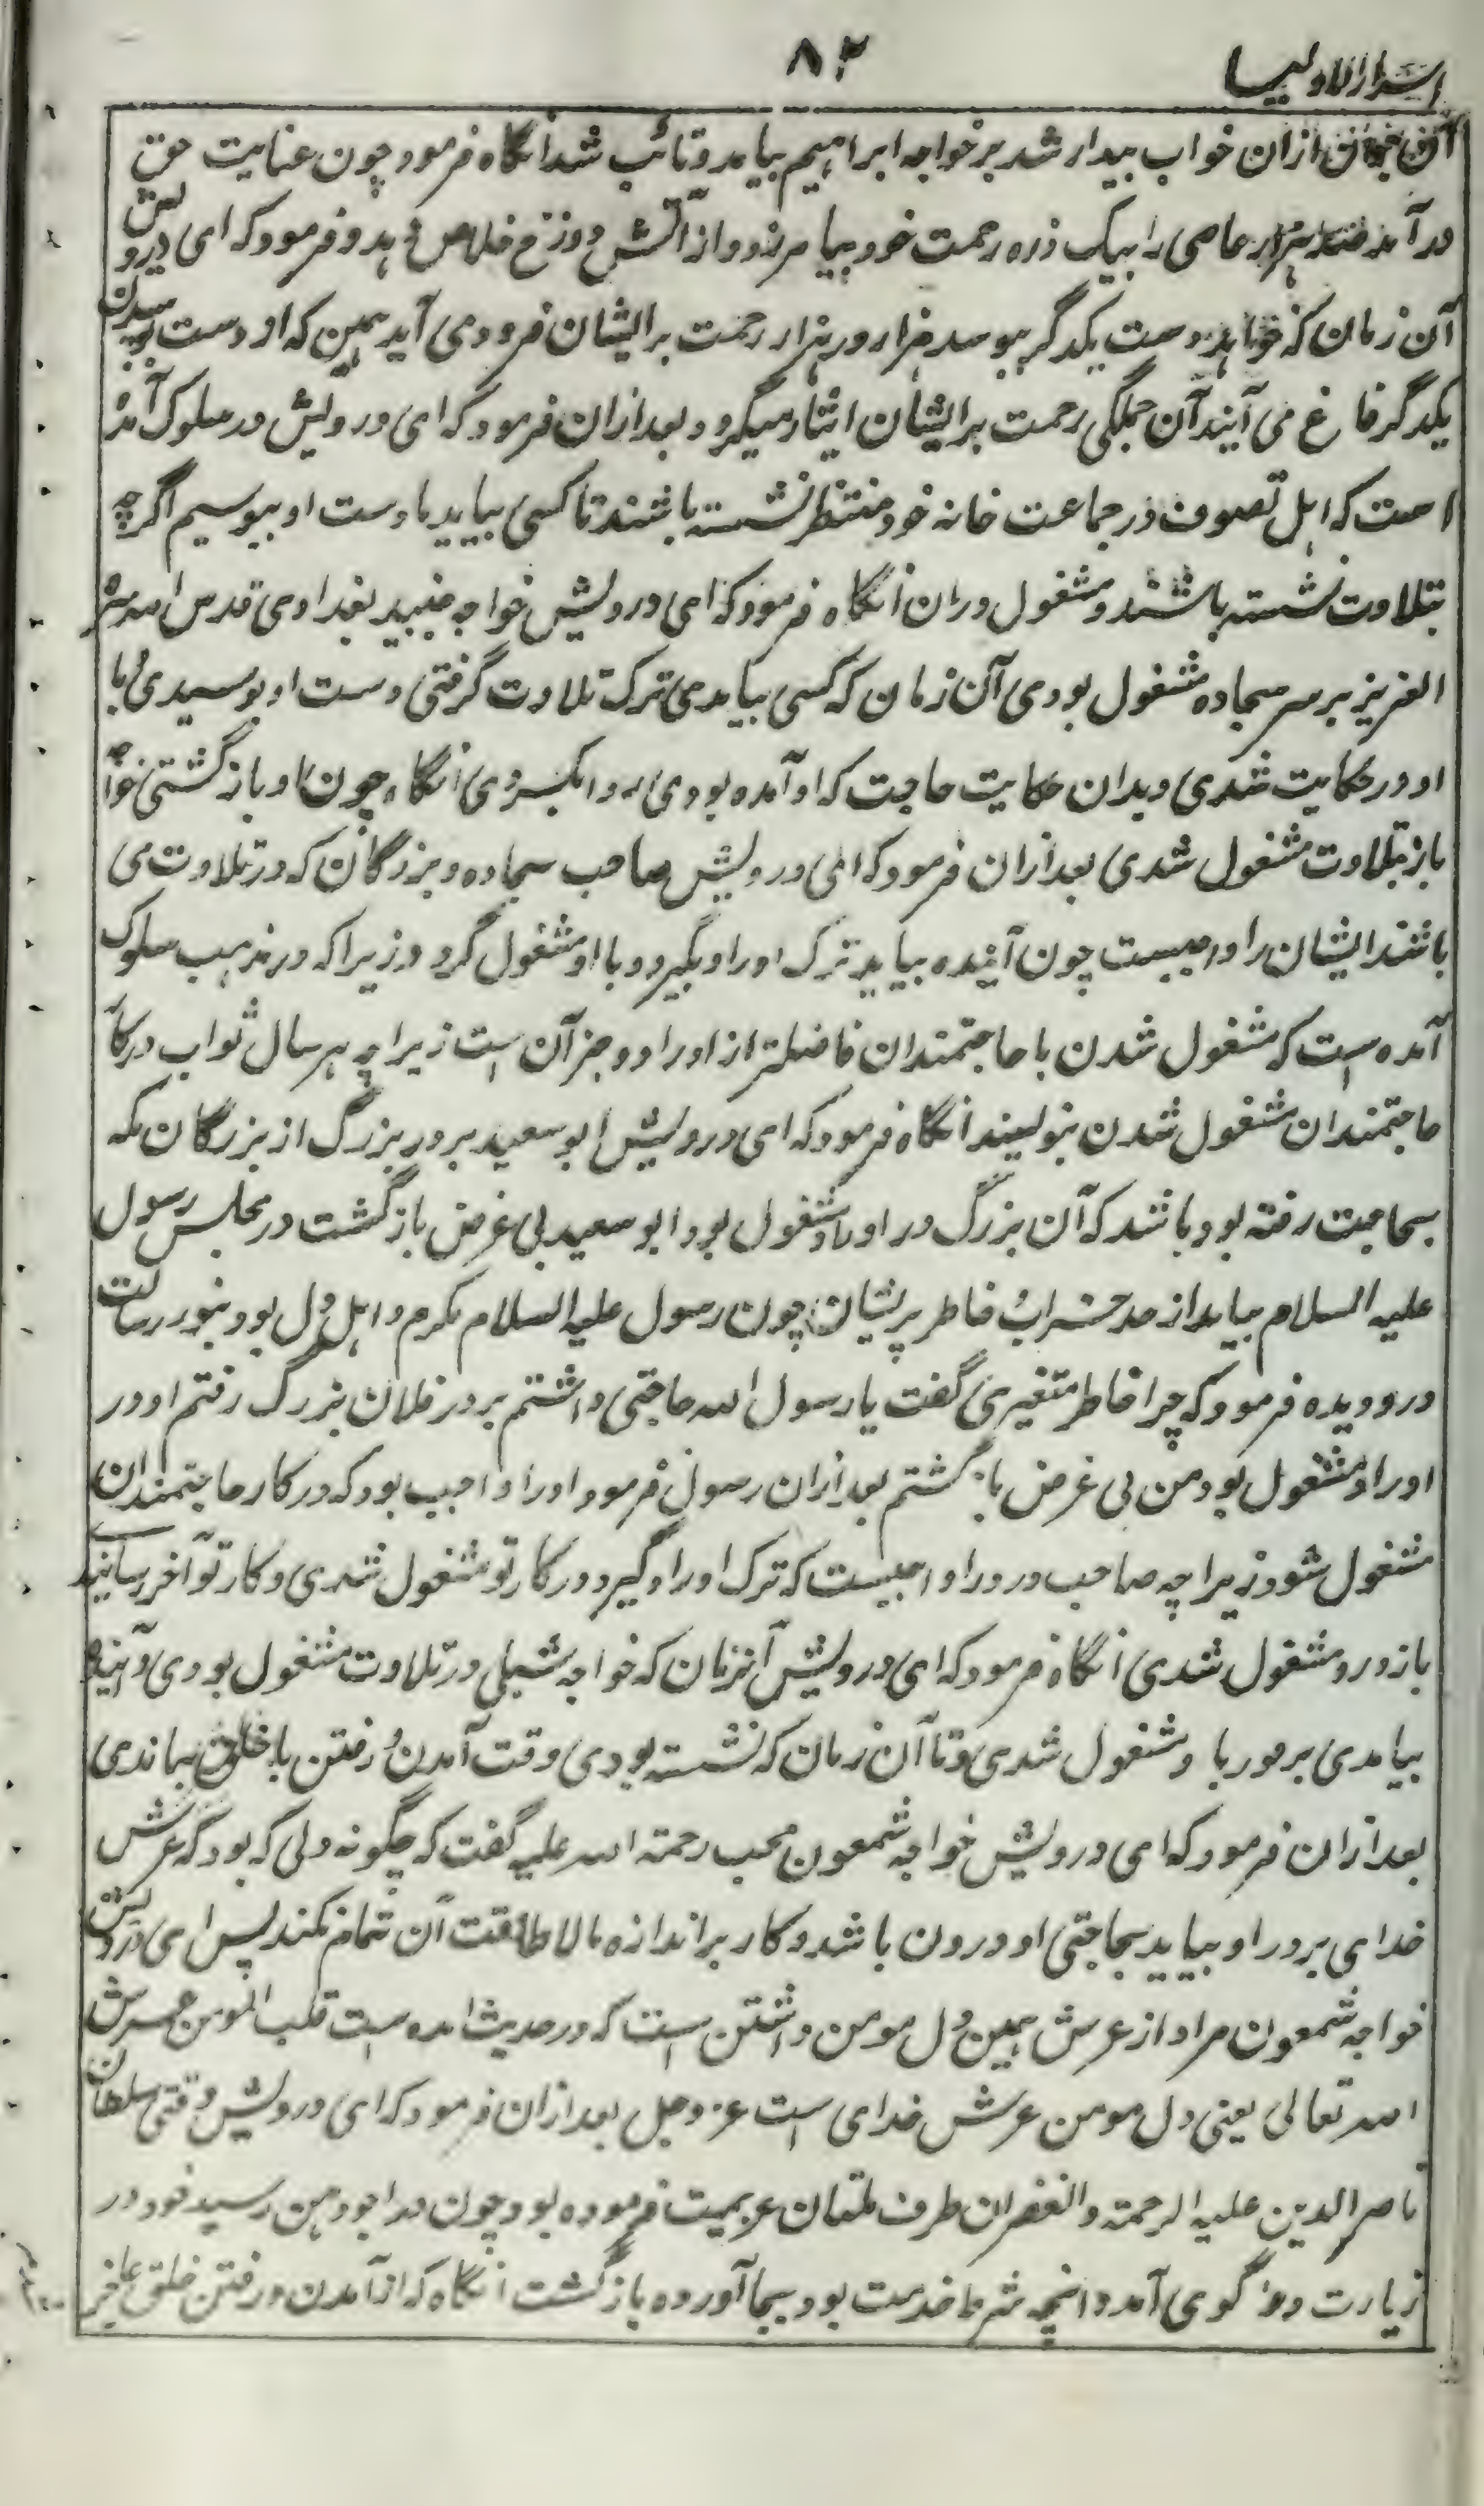 اسرار الاولیا
۸۲
آن جوان ازان خواب بیدار شد بر خواجه ابراهیم بیامد و تائب شد آنگاه فرمود چون عنایت حق
در آمد صد هزار عاصی را بیک ذره رحمت خود بیامرزد و از آتش دوزخ خلاص دهد و فرمود که ای درویش
آن زمان که خواهند دست یکدگر ببوسند هزار در هزار رحمت بر ایشان فرود می آید همین که از دست بوسیدن
یکدگر فارغ می آیند آن جملگی رحمت بر ایشان ایثار میگردد بعد ازان فرمود که ای درویش در سلوک آمده
است که اهل تصوف در جماعت خانه خود منتظر نشسته باشند تا کسی بیاید ما دست او ببوسیم اگرچه
بتلاوت نشسته باشند و مشغول دران آنگاه فرمود که ای درویش خواجه جنید بغدادی قدس الله سره
العزیز بر سر سجاده مشغول بودی آن زمان که کسی بیامدی ترک تلاوت گرفتی دست او بوسیدی با
او در حکایت شدی و بدان حکایت حاجت که او آمده بودی روا بکردی آنگاه چون او باز گشتی خواجه
باز بتلاوت مشغول شدی بعد ازان فرمود که ای درویش صاحب سجاده و بزرگان که در تلاوت می
باشند ایشان را واجبست چون آینده بیاید ترک اوراد بگیرد و با او مشغول گردد زیرا که در مذهب سلوک
آمده است که مشغول شدن با حاجتمندان فاضلتر از اوراد و جز آن است زیراچه هر سال ثواب درکار
حاجتمندان مشغول شدن بنویسند آنگاه فرمود که ای درویش ابو سعید بر در بزرگ از بزرگان مکه
بحاجت رفته بود باشد که آن بزرگ در اوراد مشغول بود ابو سعید بی غرض باز گشت در مجلس رسول
علیه السلام بیامد از حد خراب خاطر پریشان چون رسول علیه السلام مکرم و اهل دل بود بنور رسالت
درو دیده فرمود که چرا خاطر متغیری گفت یا رسول الله حاجتی داشتم بر در فلان بزرگ رفتم او در
اوراد مشغول بود من بی غرض باز گشتم بعد ازان رسول فرمود او را واجب بود که در کار حاجتمندان
مشغول شود زیراچه صاحب ورد را واجبست که ترک اوراد گیرد و در کار تو مشغول شدی و کار تو آخر رسانیده
باز ورد مشغول شدی آنگاه فرمود که ای درویش آنزمان که خواجه شبلی در تلاوت مشغول بودی و آینده
بیامدی بر فور با و مشغول شدی و تا آن زمان که نشسته بودی وقت آمدن و رفتن با خلق بماندی
بعد ازان فرمود که ای درویش خواجه شمعون محب رحمة الله علیه گفت که چگونه دلی که بود که عرش
خدای بر در او بیاید بحاجتی او درون باشد و کار بر اندازه ما لا طاقت آن تمام نکند پس ای درویش
خواجه شمعون مراد از عرش همین دل مومن داشتن است که در حدیث آمده است قلب المومن عرش
الله تعالی یعنی دل مومن عرش خدای است عز و جل بعد ازان فرمود که ای درویش وقتی سلطان
ناصر الدین علیه الرحمة و الغفران طرف ملتان عزیمت فرموده بود چون در اجودهن رسید خود در
زیارت دعا گوی آمد و آنچه شرط خدمت بود بجا آورده باز گشت آنگاه که از آمدن و رفتن خلق عاجز